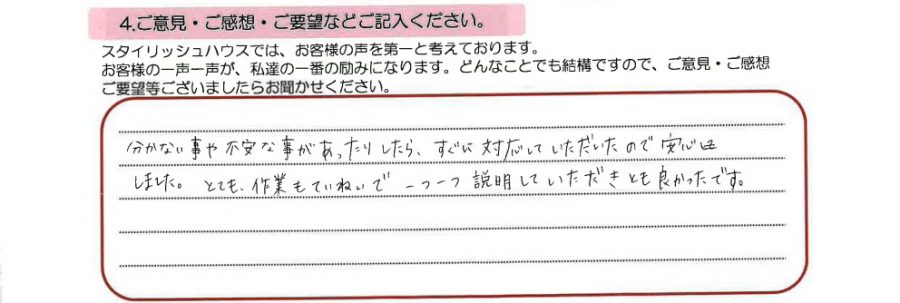 4.ご意見・ご感想・ご要望などご記入ください。
スタイリッシュハウスでは、お客様の声を第一と考えております。
お客様の一声一声が、私達の一番の励みになります。どんなことでも結構ですので、ご意見・ご感想
ご要望等ございましたらお聞かせください。
分かない事や不安な事があったりしたら、すぐに対応していただいたので安心は
しました。とても、作業もていねいで一つ一つ説明していただきとも良かったです。